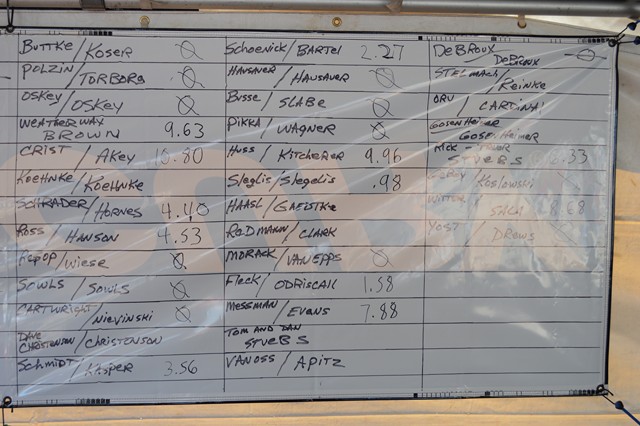 BUTTKE/KOSER Ø
POLZIN/TORBORG Ø
OSKEY/OSKEY Ø
WEATHERWAX
BROWN 9.63
CRIST/AKEY 10.80
KOEHNKE/KOEHNKE
SCHRADER/HORNES 4.40
ROSS/HANSON 4.53
/WIESE Ø
SOWLS/SOWLS Ø
CARTWRIGHT/NIEVINSKI Ø
DAVE
CHRISTENSON/CHRISTENSON
SCHMIDT/KASPER 3.56
SCHOENICK/BARTEL 2.27
HANSAUER/HANSAUER Ø
BUSSE/SLABE Ø
PIKKA/WAGNER Ø
HUSS/KITCHERER 9.96
SLEGLIS/SLEGELIS .98
HAASL/
RODMANN/CLARK
MORACK/VANEPPS Ø
FLECK/ODRISCALL 1.58
MESSMAN/EVANS 7.88
TOM AND DAN
STUEBS
VANOSS/APITZ
DEBROUX/DEBROUX Ø
STELMACH/REINKE
/CARDINAL
GOSENHEIMER
GOSENHEIMER
STUEBS
/KOSLOWSKI
YOST/DREWS